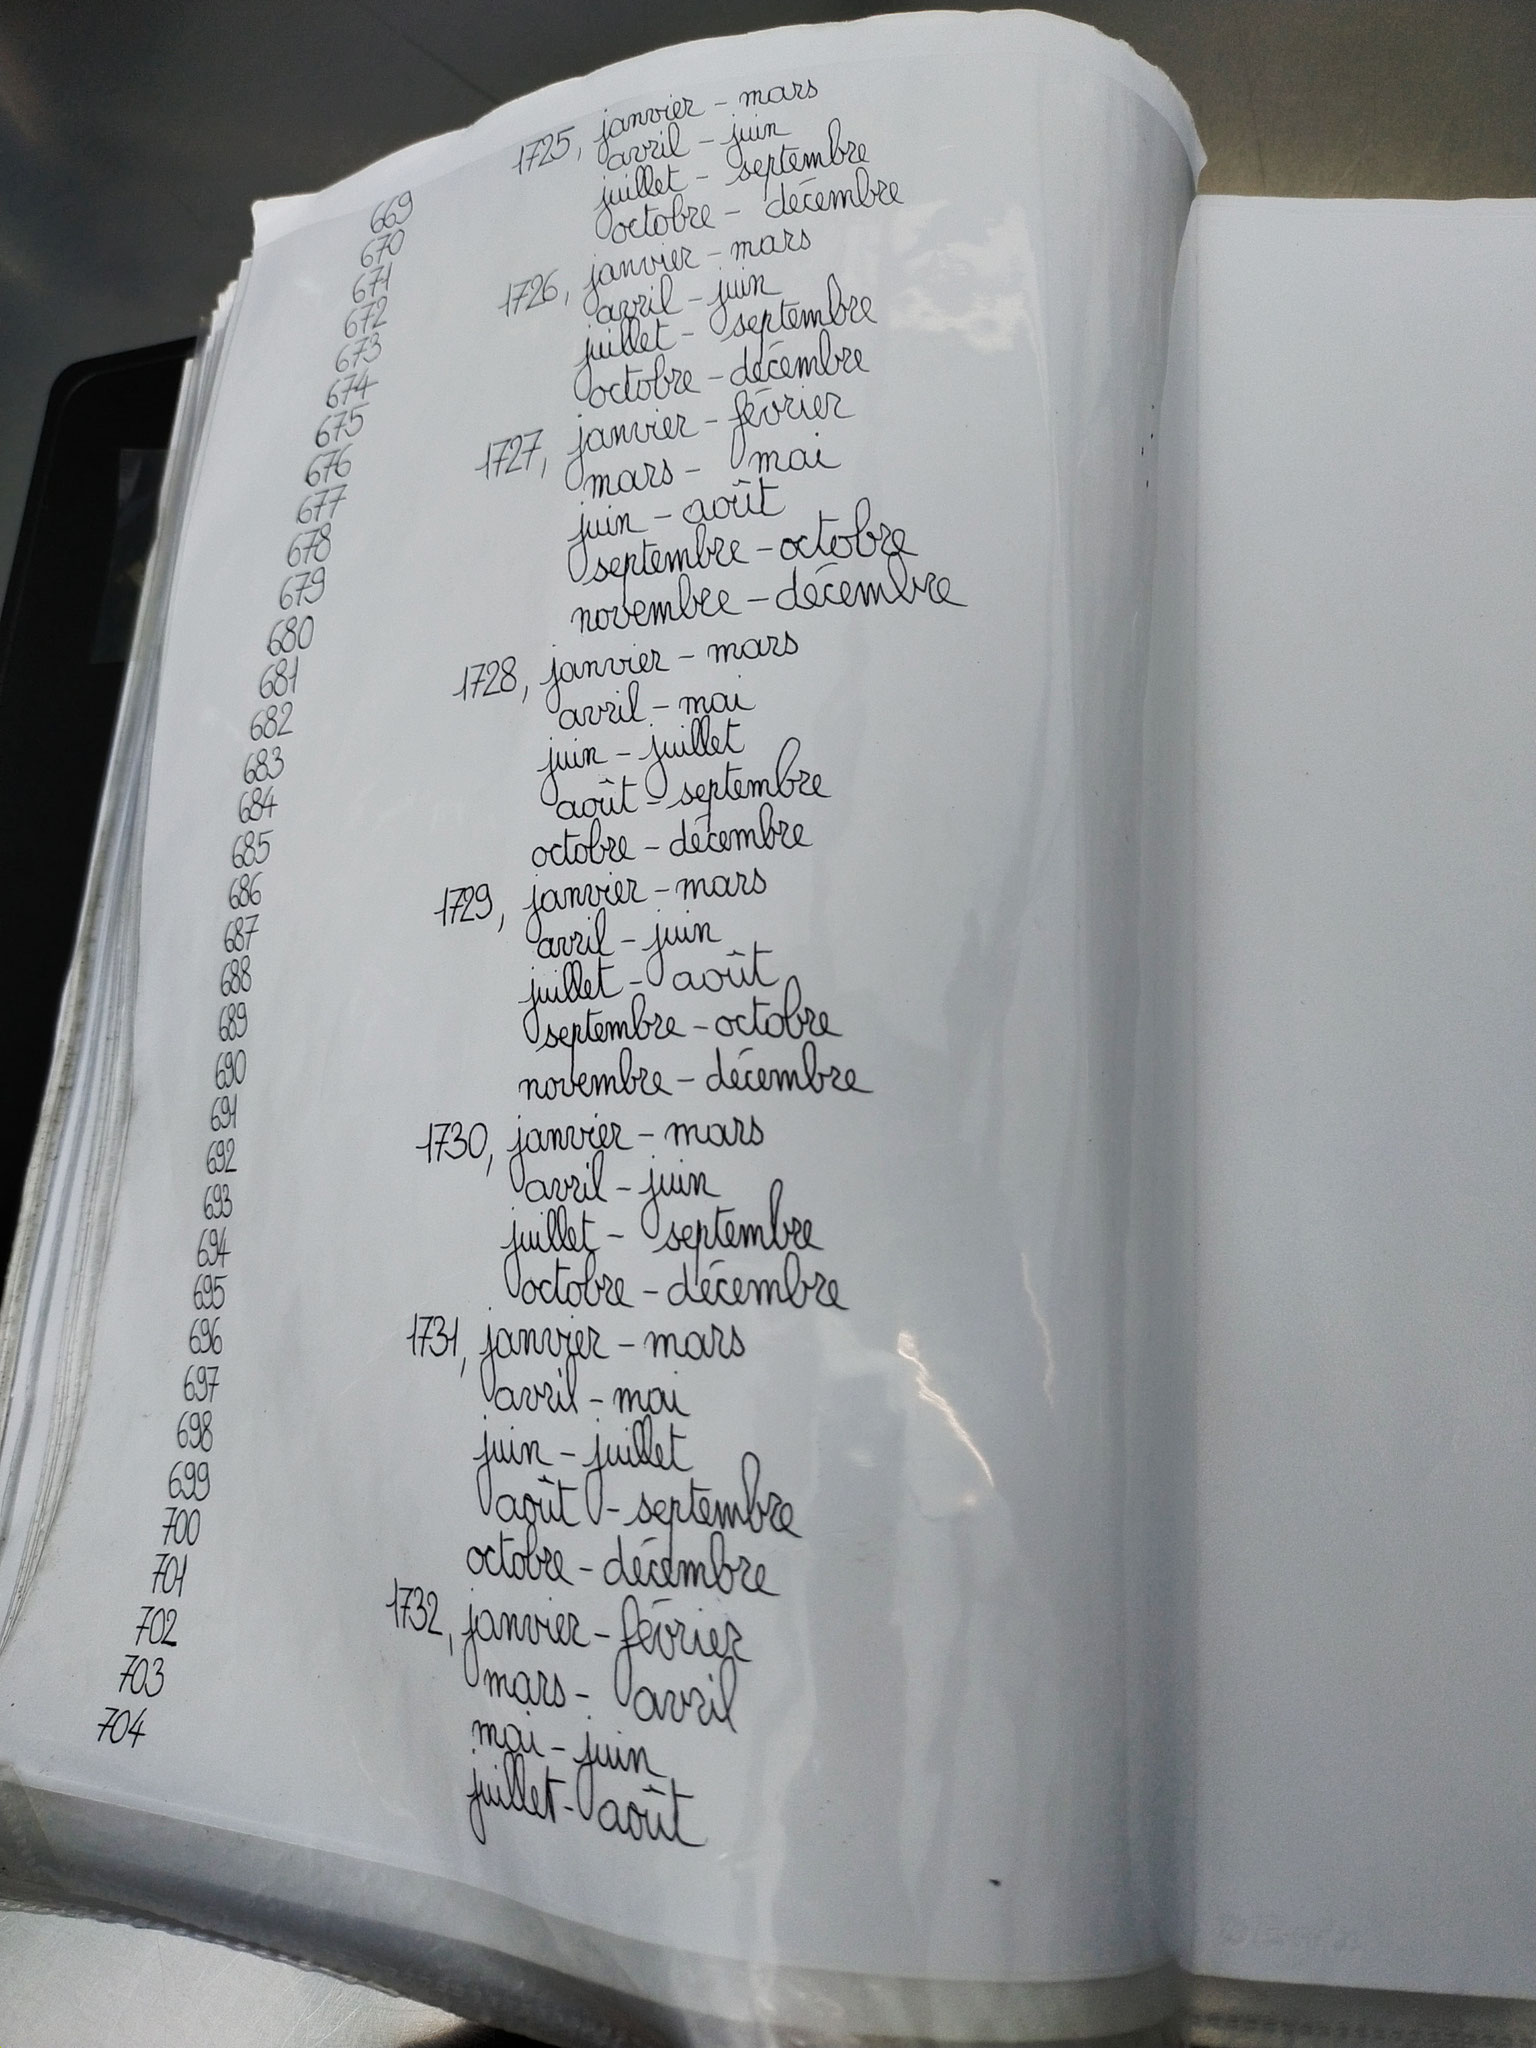 669 1725, janvier - mars
670 avril - juin
671 juillet - septembre
672 octobre - décembre
673 1726, janvier - mars
674 avril - juin
675 juillet - septembre
676 octobre - décembre
677 1727, janvier - février
678 mars - mai
679 juin - août
680 septembre - octobre
681 novembre - décembre
682 1728, janvier - mars
683 avril - mai
684 juin - juillet
685 août - septembre
686 octobre - décembre
687 1729, janvier - mars
688 avril - juin
689 juillet - août
690 septembre - octobre
691 novembre - décembre
692 1730, janvier - mars
693 avril - juin
694 juillet - septembre
695 octobre - décembre
696 1731, janvier - mars
697 avril - mai
698 juin - juillet
699 août - septembre
700 octobre - décembre
701 1732, janvier - février
702 mars - avril
703 mai - juin
704 juillet - août